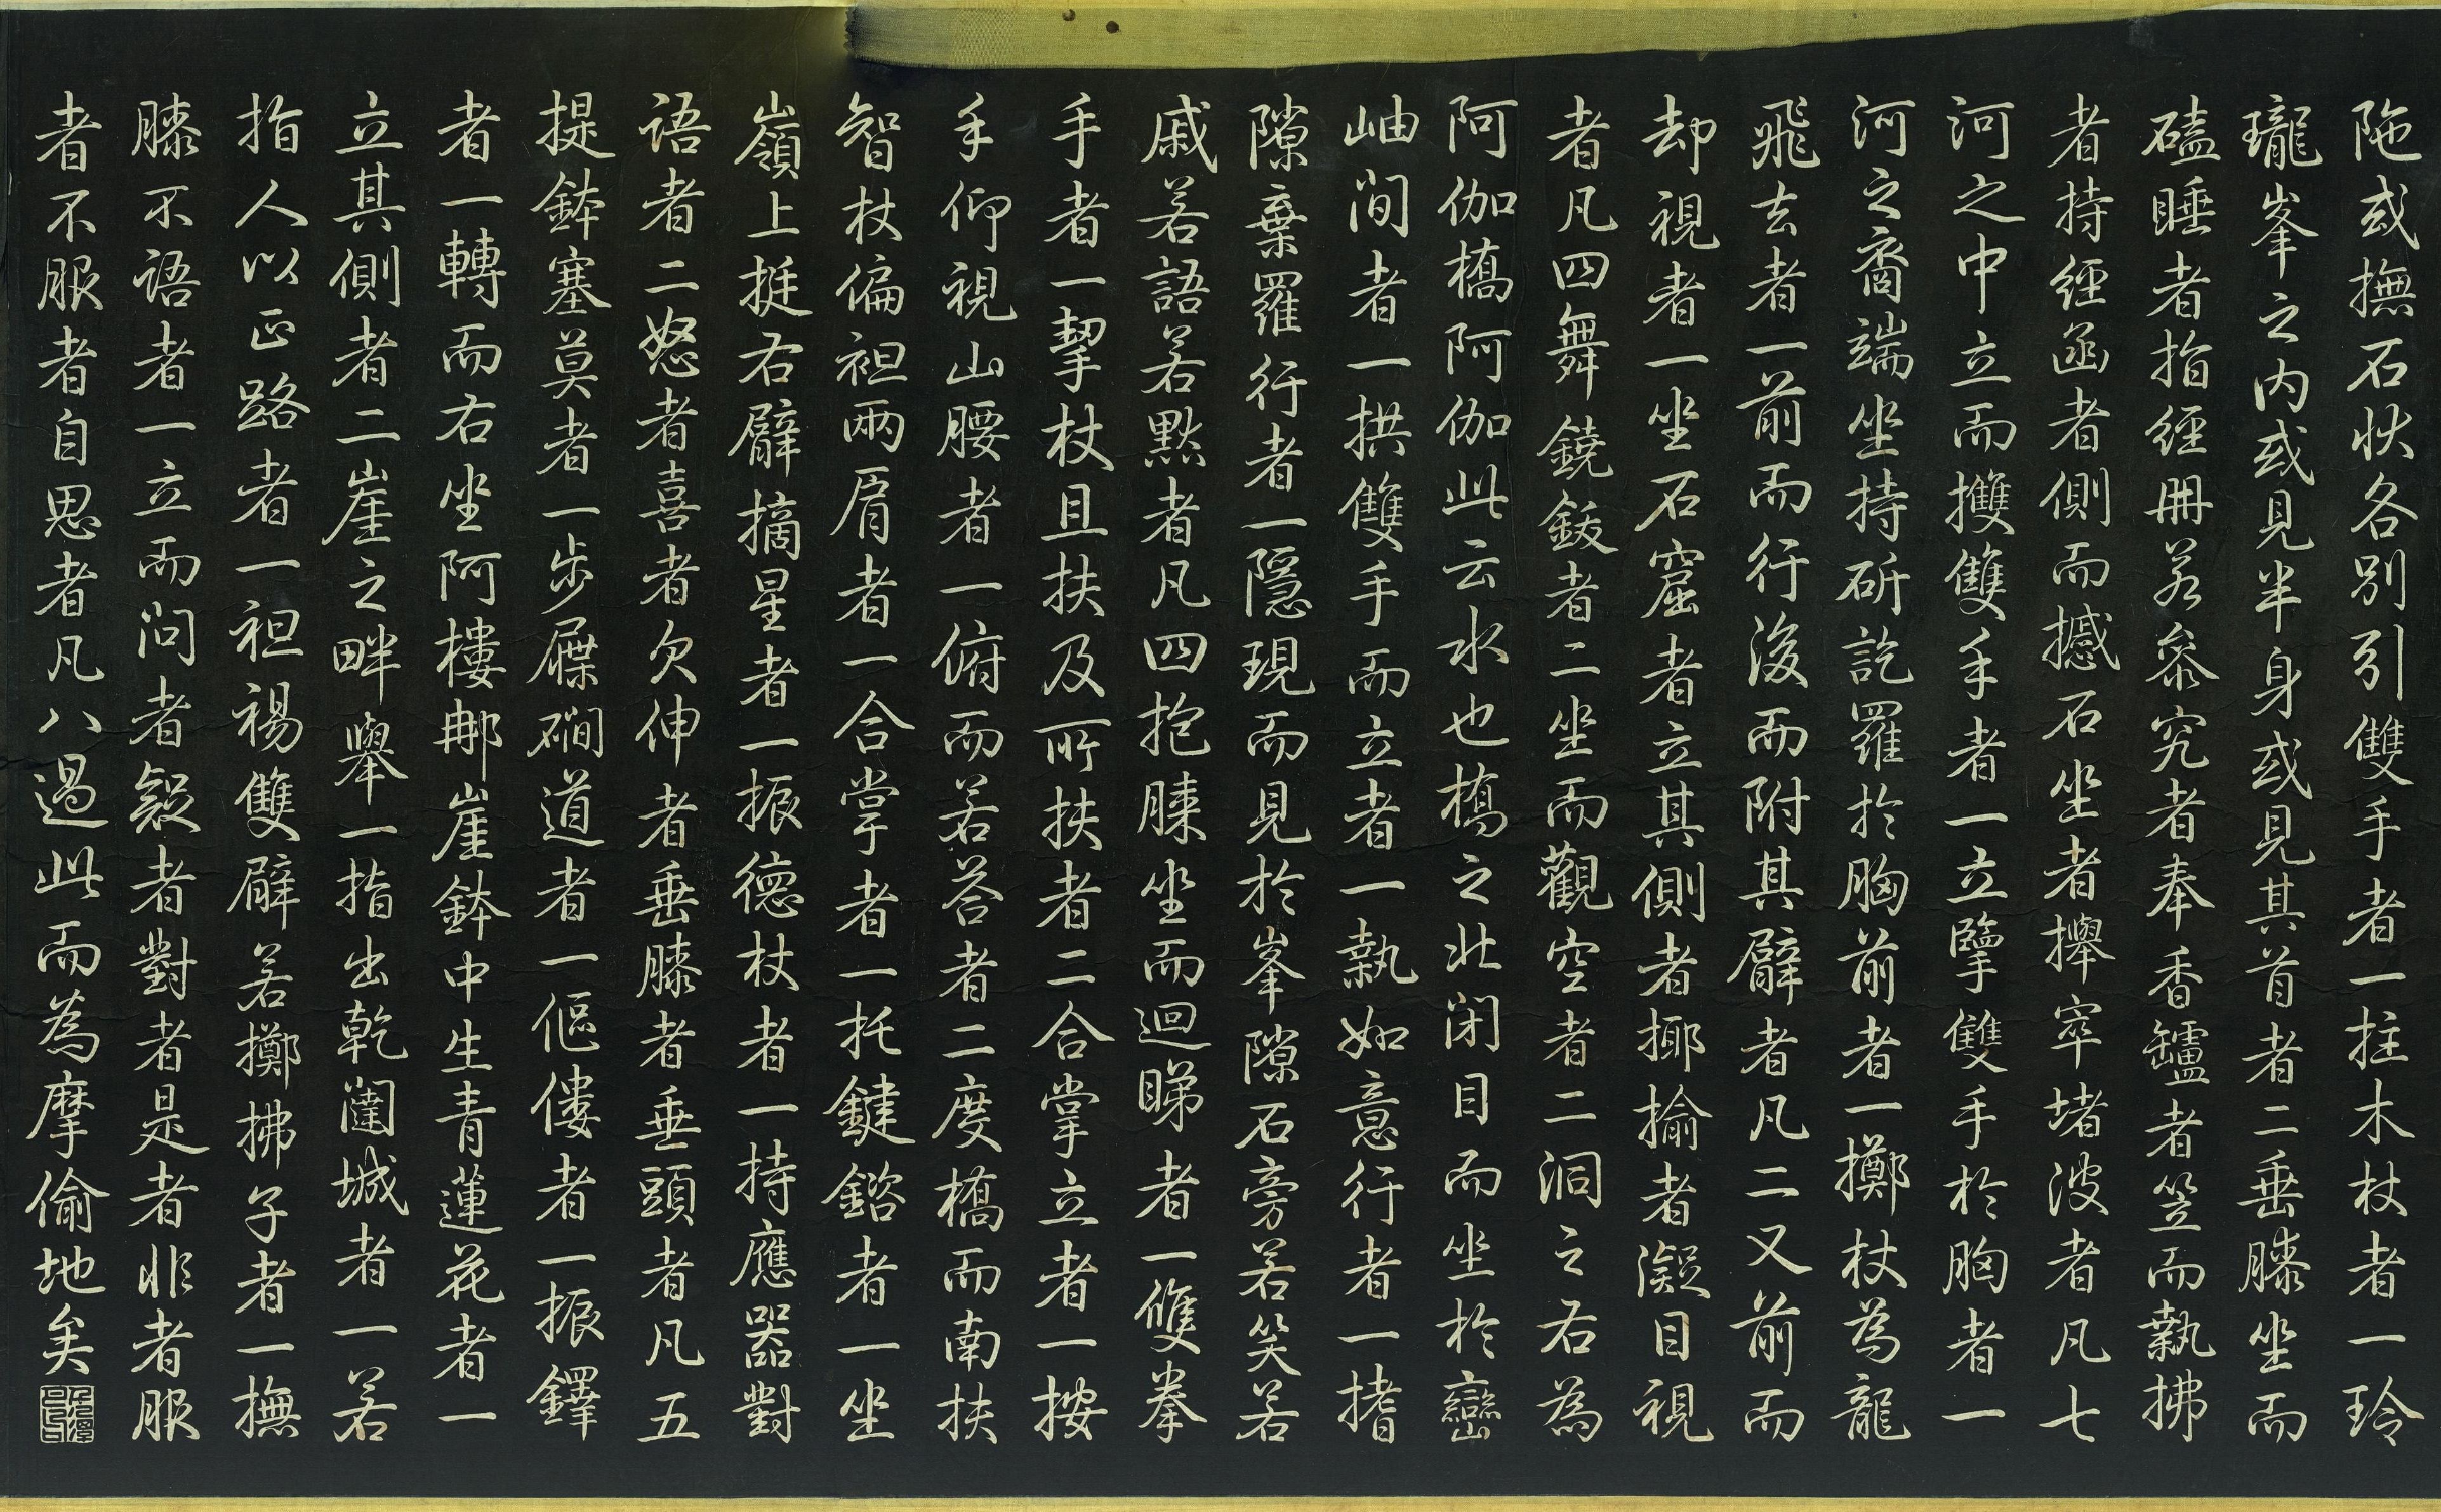 陁或撫石狀各別引雙手者一拄木杖者一玲
瓏峯之内或見半身或見其首者二垂膝坐而
磕睡者指經冊若叅究者奉香鑪者笠而執拂
者持經函者側而撼石坐者攑窣堵波者凡七
河之中立而攫雙手者一立擥雙手於胸者一
河之裔端坐持斫訖羅於胸前者一擲杖為龍
飛去者一前而行後而附其臂者凡二又前而
却視者一坐石窟者立其側者揶揄者凝目視
者凡四舞鐃鈸者二坐而觀空者二洞之右為
阿伽橋阿伽此云水也橋之北閉目而坐於巒
岫間者一拱雙手而立者一執如意行者一搘
隙棄羅行者一隱現而見於峯隙石旁若笑若
戚若語若默者凡四抱膝坐而迴睇者一雙拳
手者一挈杖且扶及所扶者二合掌立者一按
手仰視山腰者一俯而若荅者二度橋而南扶
智杖偏袒兩肩者一合掌者一托鍵鎔者一坐
嶺上挺右臂摘星者一振德杖者一持應器對
語者二怒者喜者欠伸者垂膝者垂頭者凡五
提鉢塞莫者一步屧磵道者一傴僂者一振鐸
者一轉而右坐阿樓那崖鉢中生青蓮花者一
立其側者二崖之畔舉一指出乾闥城者一若
指人以正路者一袒裼雙臂若擲拂子者一撫
膝不語者一立而問者疑者對者是者非者服
者不服者自思者凡八過此而為摩偷地矣